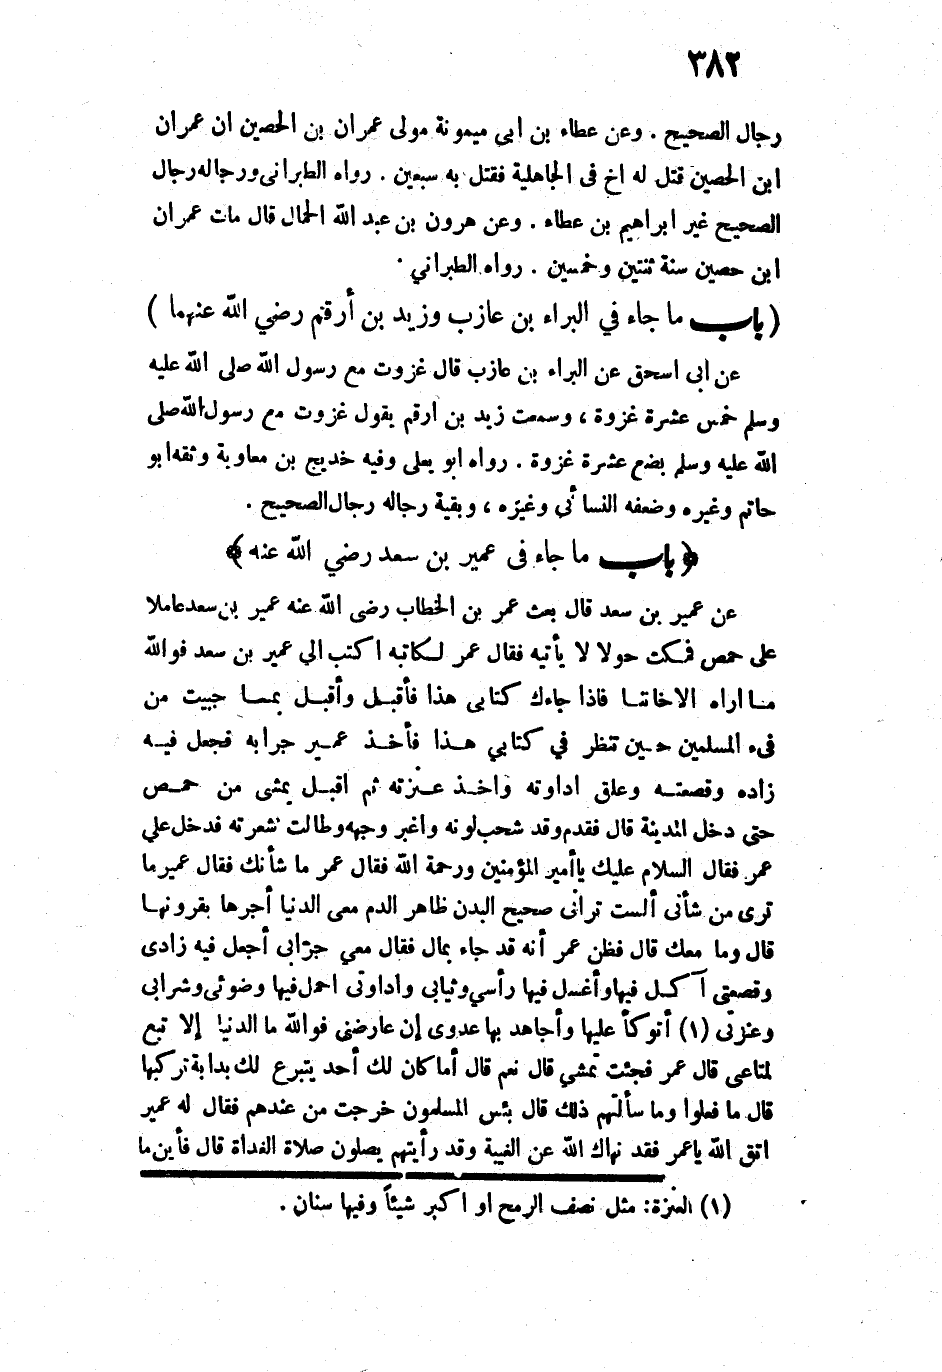 ٣٨٢
رجال الصحيح . وعن عطاء بن ابي ميمونة مولى عمران بن الحصين ان عمران
ابن الحصين قتل له اخ فى الجاهلية فقتل به سبعين . رواه الطبرانى ورجاله رجال
الصحيح غير ابراهيم بن عطاء . وعن هرون بن عبد الله الحمال قال مات عمران
ابن حصين سنة ثنتين وخمسين . رواه الطبراني .
( باب ما جاء في البراء بن عازب وزيد بن أرقم رضي الله عنهما )
عن ابى اسحق عن البراء بن عازب قال غزوت مع رسول الله صلى الله عليه
وسلم خمس عشرة غزوة ، وسمعت زيد بن ارقم يقول غزوت مع رسول الله صلى
الله عليه وسلم بضع عشرة غزوة . رواه ابو يعلى وفيه خديج بن معاوية وثقه ابو
حاتم وغيره وضعفه النسائى وغيره ، وبقية رجاله رجال الصحيح .
﴿ باب ما جاء فى عمير بن سعد رضي الله عنه ﴾
عن عمير بن سعد قال بعث عمر بن الخطاب رضى الله عنه عمير بن سعد عاملا
على حمص فمكث حولا لا يأتيه فقال عمر لكاتبه اكتب الي عمير بن سعد فوالله
ما اراه الا خاننا فاذا جاءك كتابى هذا فأقبل وأقبل بما جبيت من
فىء المسلمين حين تنظر في كتابي هذا فأخذ عمير جرابه فجعل فيه
زاده وقصعته وعلق اداوته واخذ عنزته ثم اقبل يمشى من حمص
حتى دخل المدينة قال فقدم وقد شحب لونه واغبر وجهه وطالت شعرته فدخل علي
عمر فقال السلام عليك ياأمير المؤمنين ورحمة الله فقال عمر ما شأنك فقال عمير ما
ترى من شأنى ألست ترانى صحيح البدن ظاهر الدم معى الدنيا أجرها بقرونها
قال وما معك قال فظن عمر أنه قد جاء بمال فقال معي جرابى أجعل فيه زادى
وقصعتى آكل فيها وأغسل فيها رأسي وثيابى واداوتى احمل فيها وضوئى وشرابى
وعنزتى (١) أتوكأ عليها وأجاهد بها عدوى إن عارضنى فوالله ما الدنيا إلا تبع
لمتاعى قال عمر فجئت تمشي قال نعم قال أما كان لك أحد يتبرع لك بدابة تركبها
قال ما فعلوا وما سألتهم ذلك قال بئس المسلمون خرجت من عندهم فقال له عمير
اتق الله ياعمر فقد نهاك الله عن الغيبة وقد رأيتهم يصلون صلاة الغداة قال فأين ما
(١) العنزة: مثل نصف الرمح او اكبر شيئاً وفيها سنان .